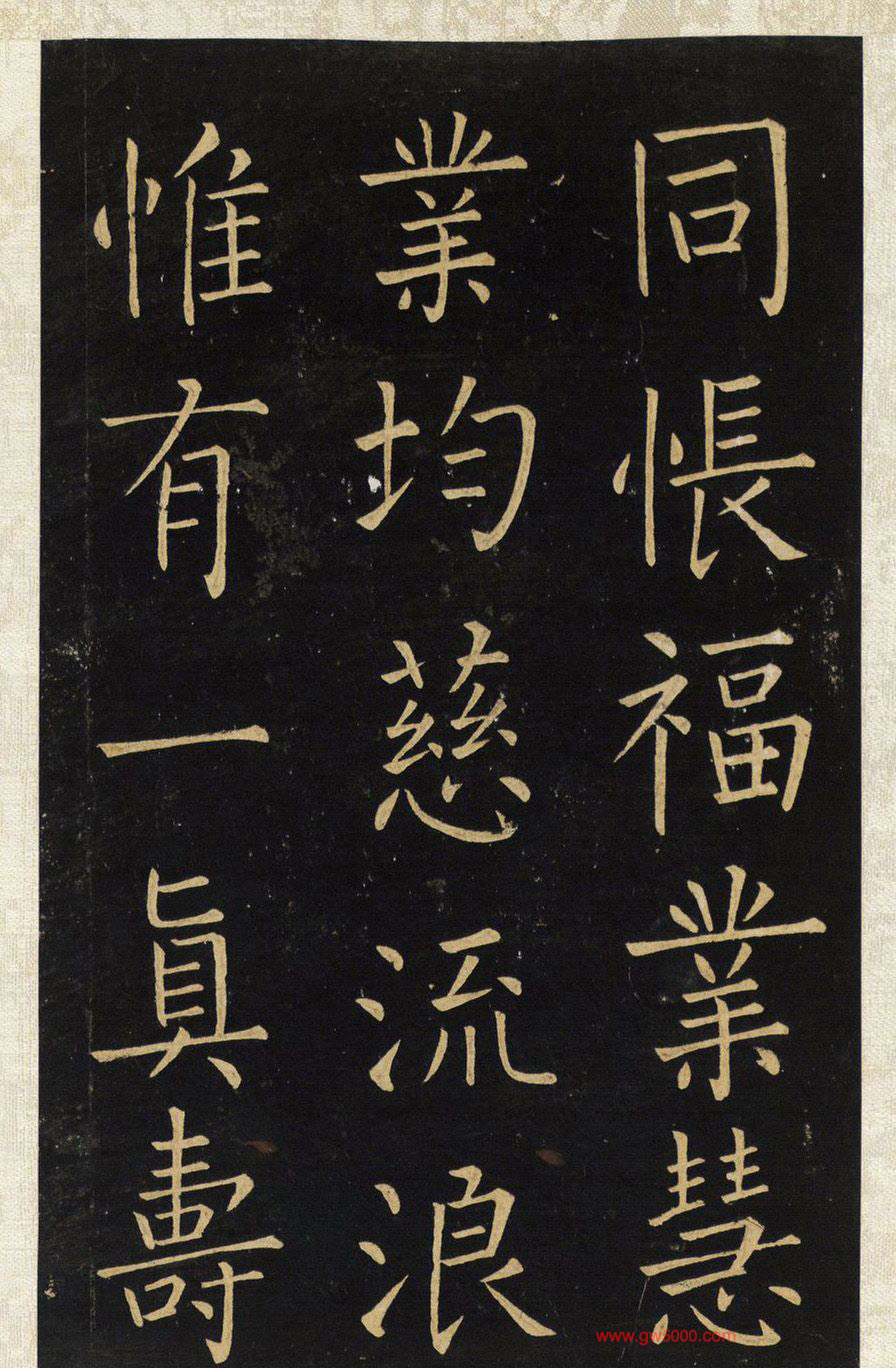 同悵福業慧
業均慈流浪
惟有一眞壽
www.gw5000.com